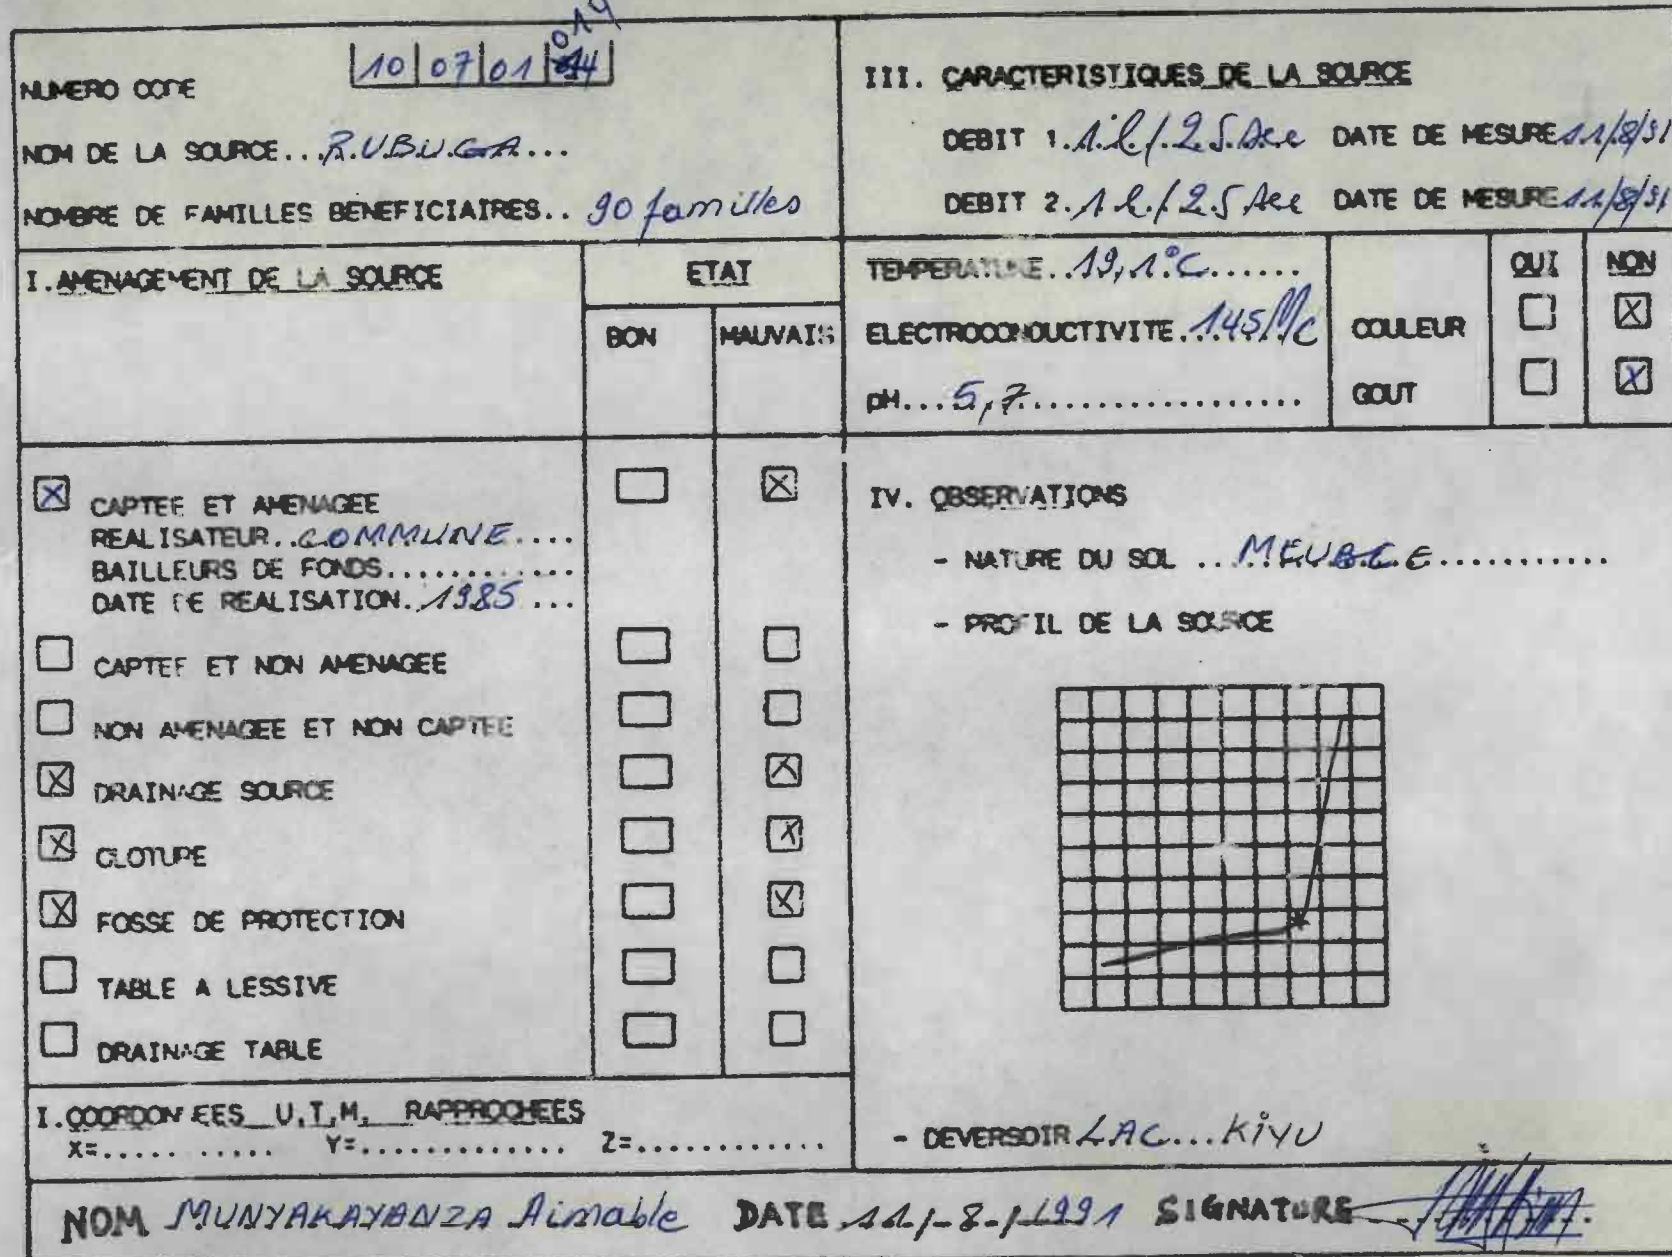 014
NUMERO CODE 10 07 01
NOM DE LA SOURCE...RUBUGA...
NOMBRE DE FAMILLES BENEFICIAIRES.. 90 familles
I. AMENAGEMENT DE LA SOURCE
ETAT
BON MAUVAIS
☒ CAPTEE ET AMENAGEE
REALISATEUR..COMMUNE....
BAILLEURS DE FONDS.............
DATE DE REALISATION..1985...
☐ CAPTEE ET NON AMENAGEE
☐ NON AMENAGEE ET NON CAPTEE
☒ DRAINAGE SOURCE
☒ CLOTURE
☒ FOSSE DE PROTECTION
☐ TABLE A LESSIVE
☐ DRAINAGE TABLE
I. COORDONNEES U.T.M. RAPPROCHEES
X=..... ..... Y=............. Z=............
III. CARACTERISTIQUES DE LA SOURCE
DEBIT 1. 1 l / 25 sec DATE DE MESURE 11/8/91
DEBIT 2. 1 l / 25 sec DATE DE MESURE 11/8/91
TEMPERATURE..19,1°C......
ELECTROCONDUCTIVITE..145
pH...5,7..................
OUI NON
COULEUR ☐ ☒
GOUT ☐ ☒
IV. OBSERVATIONS
- NATURE DU SOL ...MEUBLE...........
- PROFIL DE LA SOURCE
- DEVERSOIR LAC...KIVU
NOM MUNYAKAYANZA Aimable DATE 11-8-1991 SIGNATURE